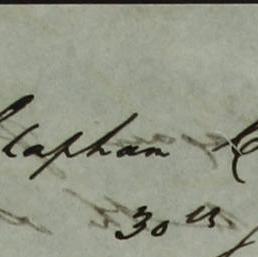 Clapham C
30th